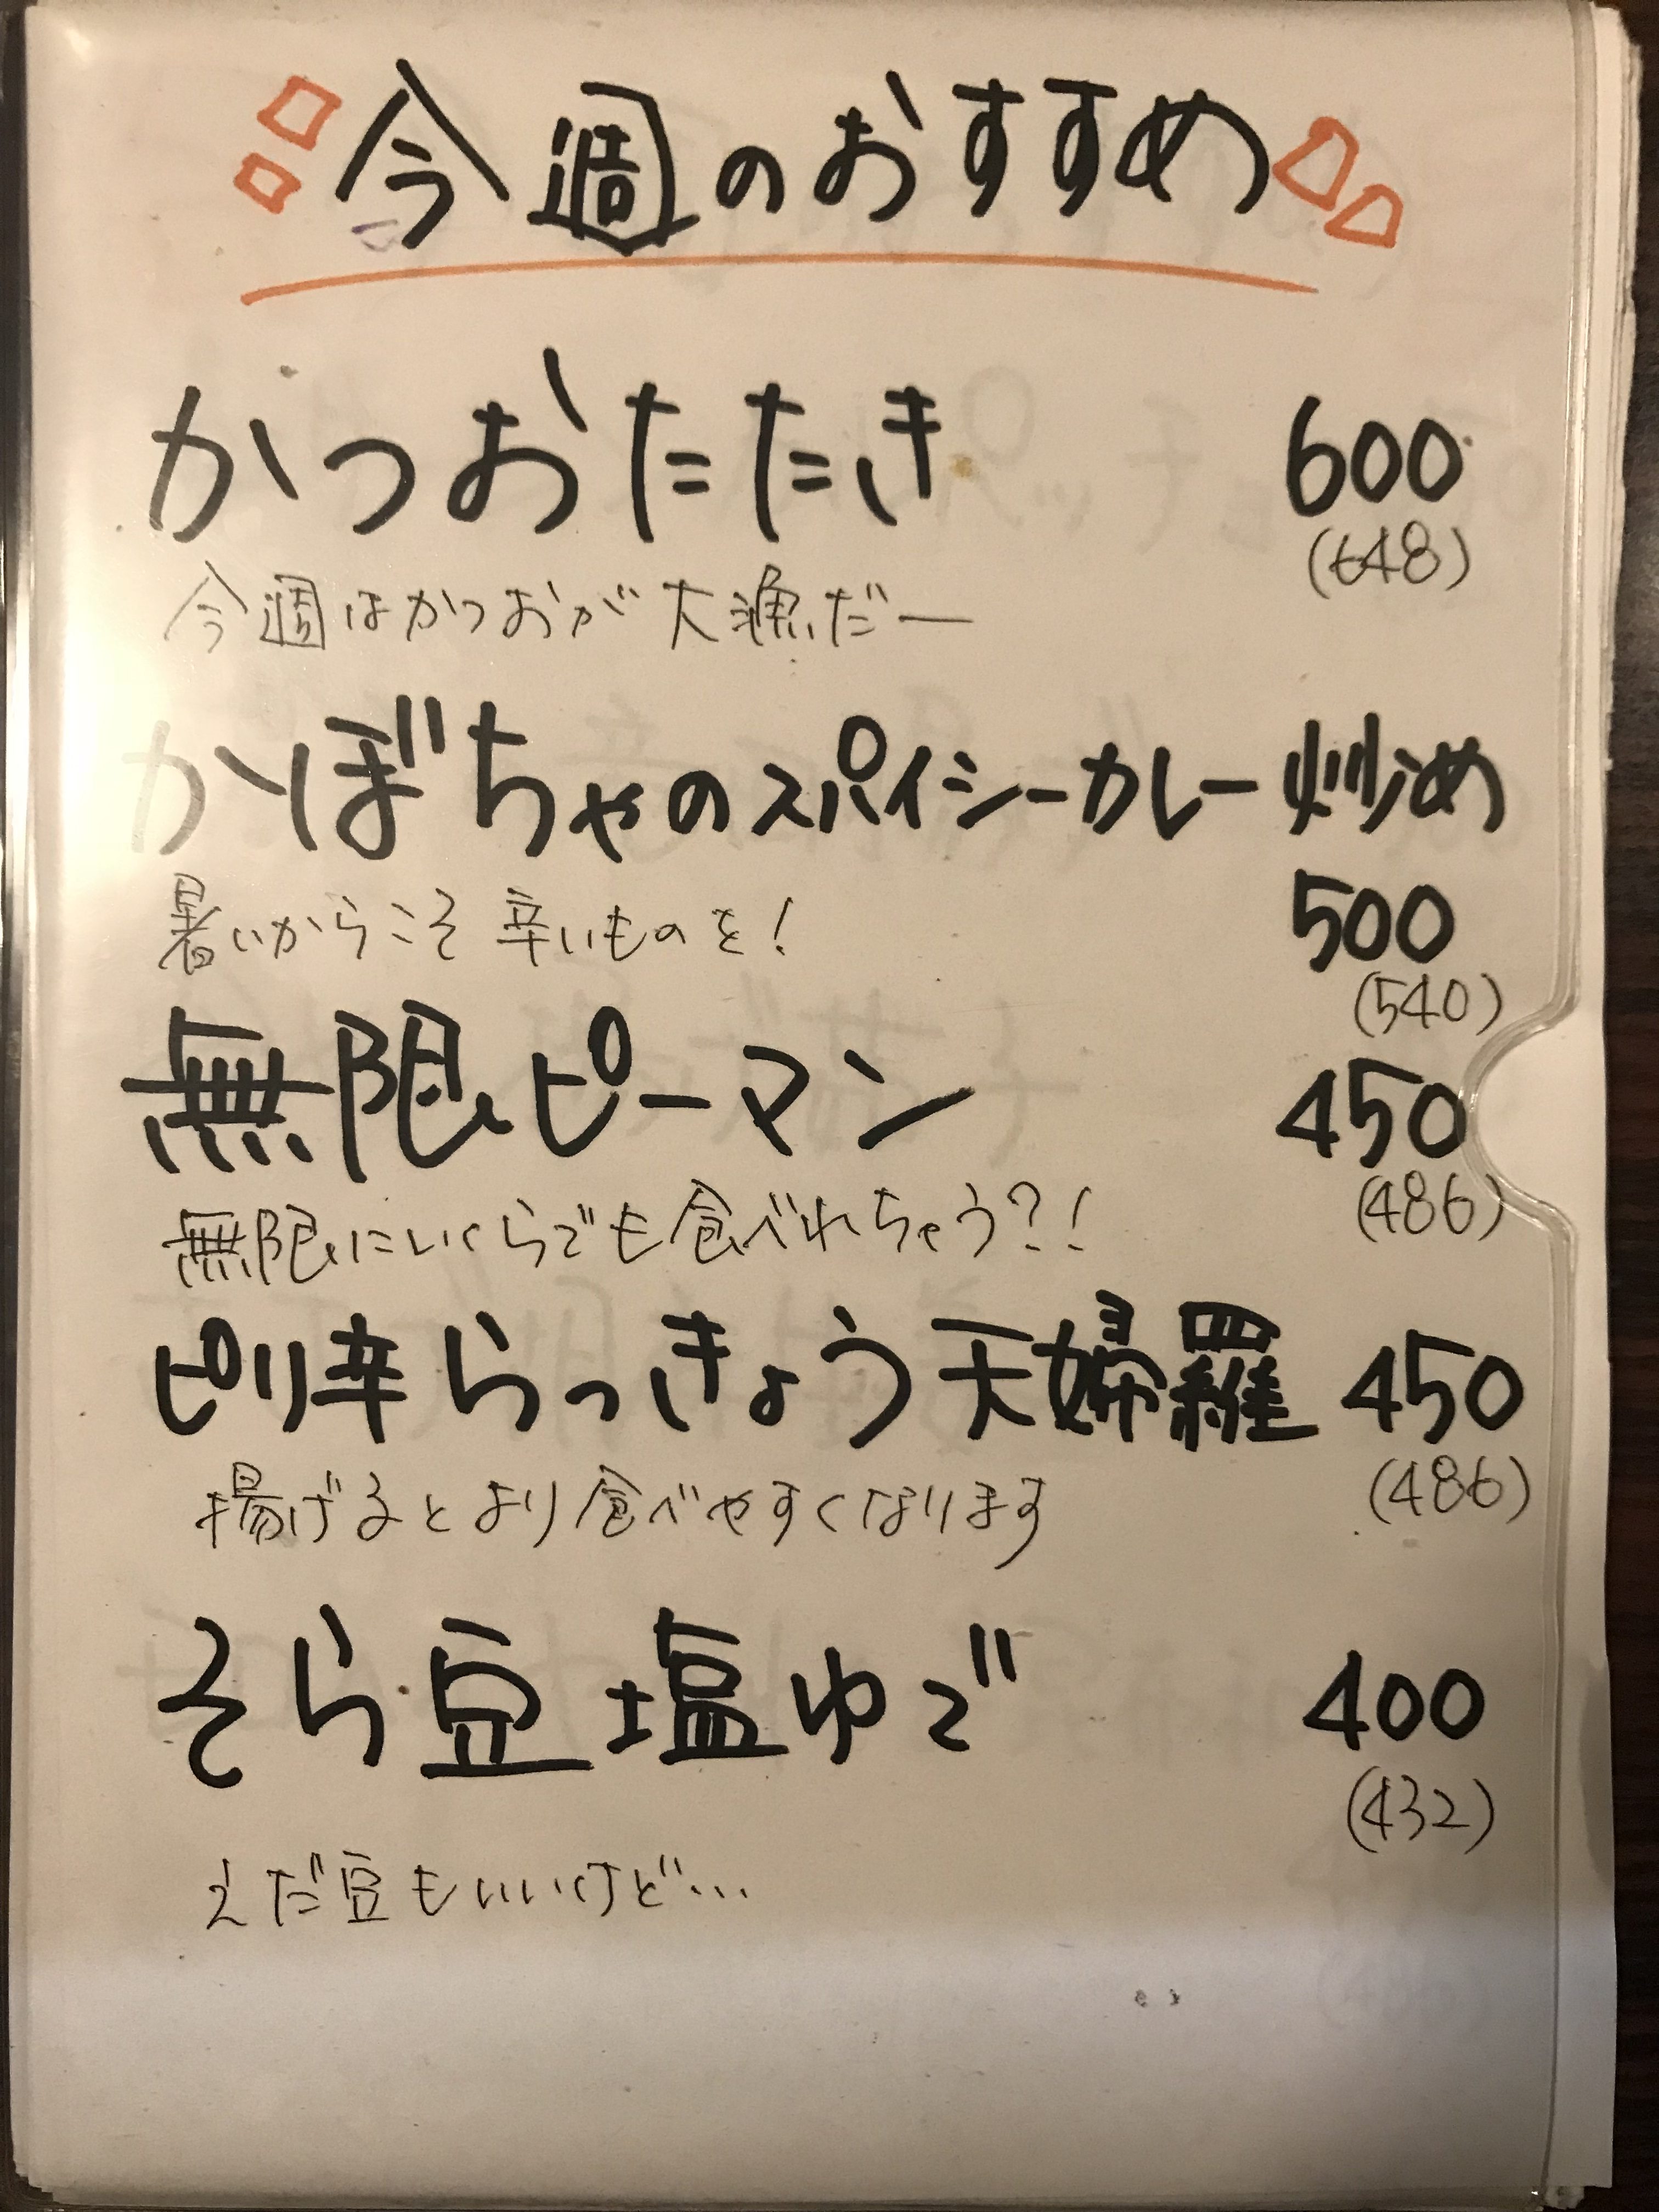 今週のおすすめ
かつおたたき 600
(648)
今週はかつおが大漁だー
かぼちゃのスパイシーカレー炒め
暑いからこそ辛いものを! 500
(540)
無限ピーマン 450
(486)
無限にいくらでも食べれちゃう?!
ピリ辛らっきょう天婦羅 450
(486)
揚げるとより食べやすくなります
そら豆塩ゆで 400
(432)
えだ豆もいいけど…